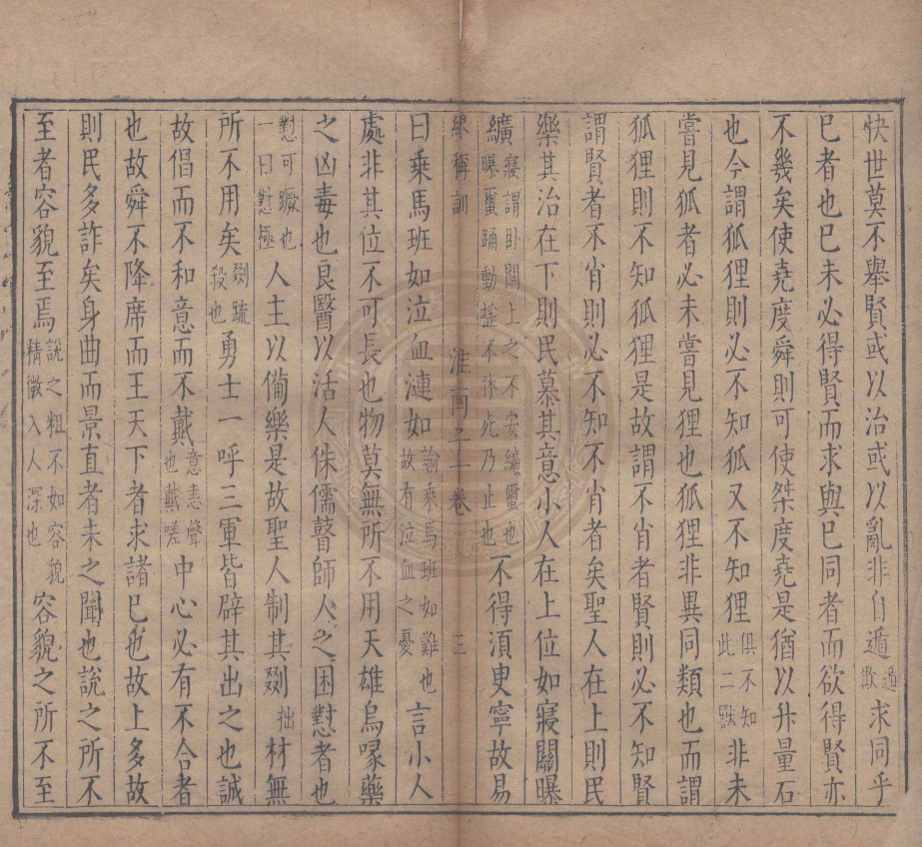 快世莫不舉賢或以治或以亂非自遁遁欺求同乎
巳者也巳未必得賢而求與巳同者而欲得賢亦
不幾矣使堯度舜則可使桀度堯是猶以升量石
也今謂狐狸則必不知狐又不知狸俱不知此二獸非未
嘗見狐者必未嘗見狸也狐狸非異同類也而謂
狐狸則不知狐狸是故謂不肖者賢則必不知賢
謂賢者不肖則必不知不肖者矣聖人在上則民
樂其治在下則民慕其意小人在上位如寢關曝
纊寢謂卧關上之不安纊璽也曝璽踊動搖不休死乃止也不得須臾寧故易
繆稱訓 淮南子卷 三
曰乘馬班如泣血漣如諭乘馬班如難也故有泣血之憂言小人
處非其位不可長也物莫無所不用天雄烏喙藥
之凶毒也良醫以活人侏儒瞽師人之困懟者也
懟可蹶也一曰懟極人主以備樂是故聖人制其剟拙材無
所不用矣剟疏殺也勇士一呼三軍皆辟其出之也誠
故倡而不和意而不戴意恚聲也戴嗟中心必有不合者
也故舜不降席而王天下者求諸巳也故上多故
則民多詐矣身曲而景直者未之聞也說之所不
至者容貌至焉說之粗不如容貌精微入人深也容貌之所不至